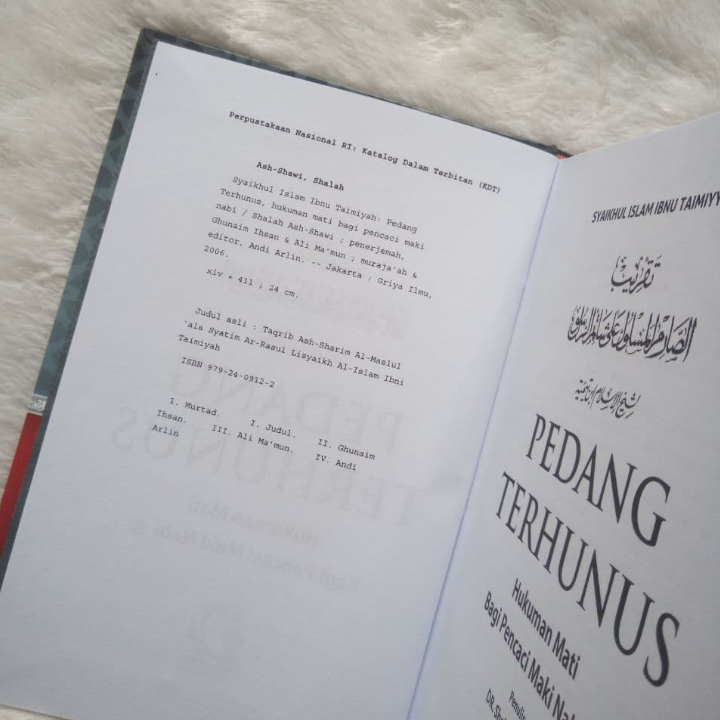 Perpustakaan Nasional RI: Katalog Dalam Terbitan (KDT)
Ash-Shawi, Shalah
Syaikhul Islam Ibnu Taimiyah: Pedang
Terhunus, hukuman mati bagi pencaci maki
nabi / Shalah Ash-Shawi ; penerjemah,
Ghunaim Ihsan & Ali Ma'mun ; muraja'ah &
editor, Andi Arlin. -- Jakarta : Griya Ilmu,
2006.
xiv + 411 ; 24 cm.
Judul asli : Taqrib Ash-Sharim Al-Maslul
'ala Syatim Ar-Rasul Lisyaikh Al-Islam Ibni
Taimiyah
ISBN 979-24-0912-2
1. Murtad. I. Judul. II. Ghunaim
Ihsan. III. Ali Ma'mun. IV. Andi
Arlin
SYAIKHUL ISLAM IBNU TAIMIYY
تقريب
الصارم المسلول على شاتم الرسول
لشيخ الإسلام ابن تيمية
PEDANG
TERHUNUS
Hukuman Mati
Bagi Pencaci Maki Na
Penulis
DR. Sh